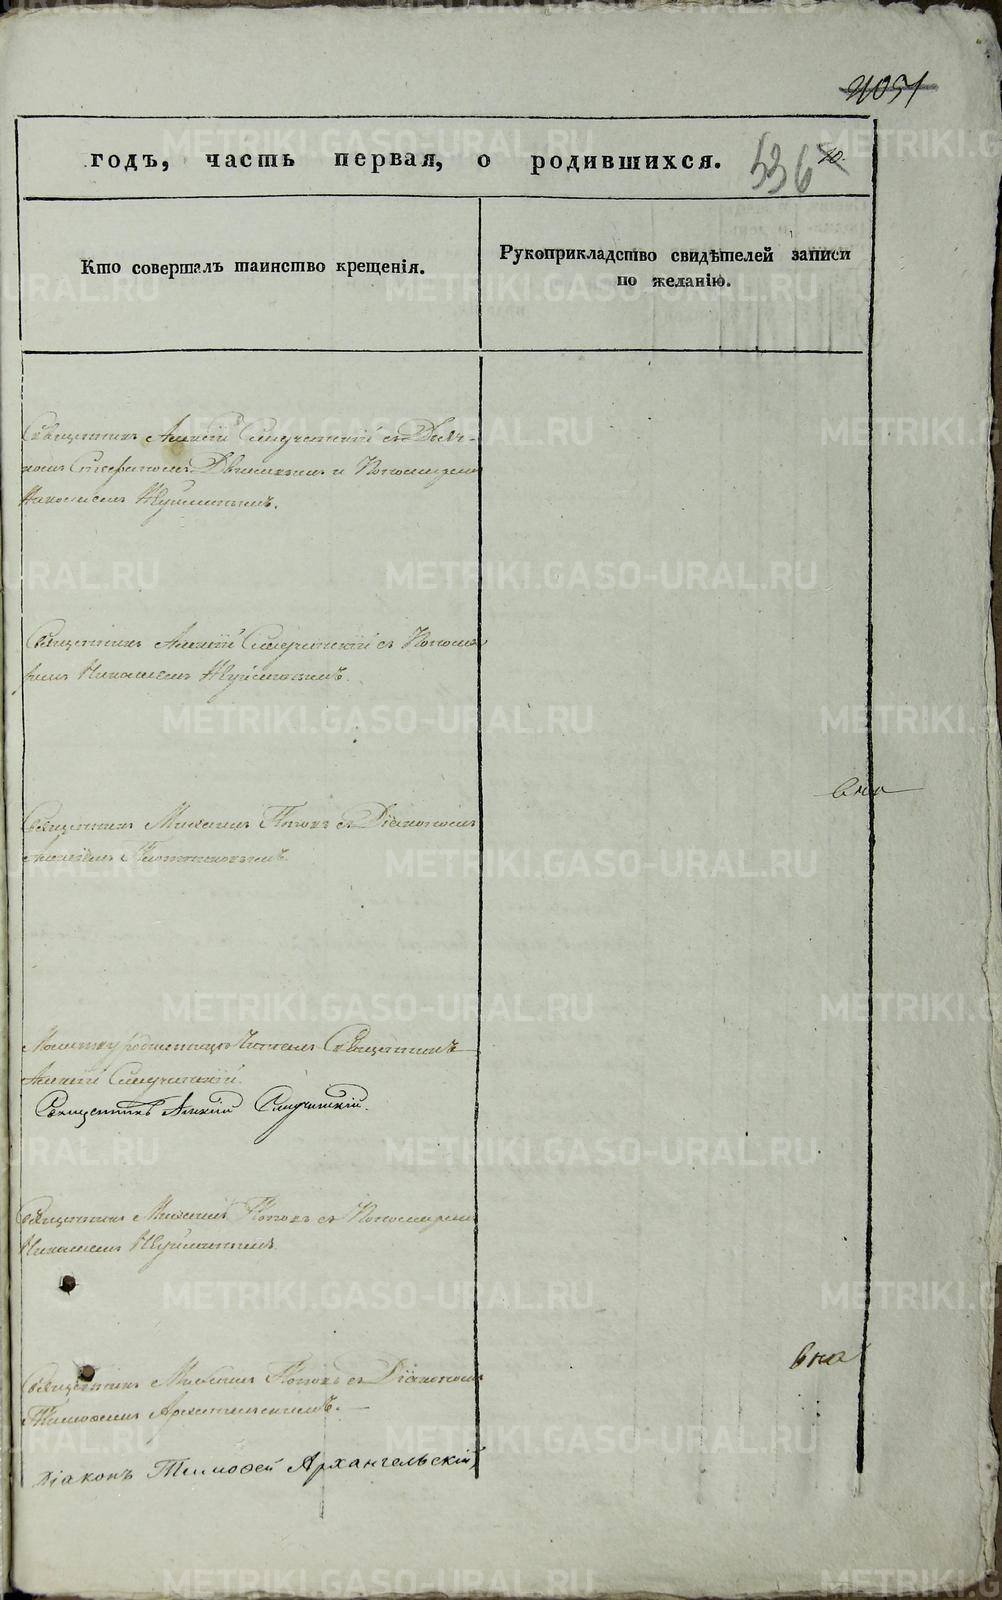 4051
годъ, часть первая, о родившихся.
536
10.
Кто совершалъ таинство крещенія.
Рукоприкладство свидѣтелей записи
по желанію.
Священникъ Алексій Случевскій съ Дьяч-
комъ Стефаномъ и Пономаремъ
Николаемъ
Священникъ Алексій Случевскій съ Понома-
ремъ Николаемъ
Священникъ Михаилъ Поповъ съ Діакономъ
Молитву родильницѣ читалъ Священникъ
Алексій Случевскій.
Священникъ Алексій Случевскій.
Священникъ Михаилъ Поповъ съ Пономаремъ
Николаемъ
Священникъ Михаилъ Поповъ съ Діакономъ
Тимофеемъ Архангельскимъ.
Діаконъ Тимофей Архангельскій
METRIKI.GASO-URAL.RU